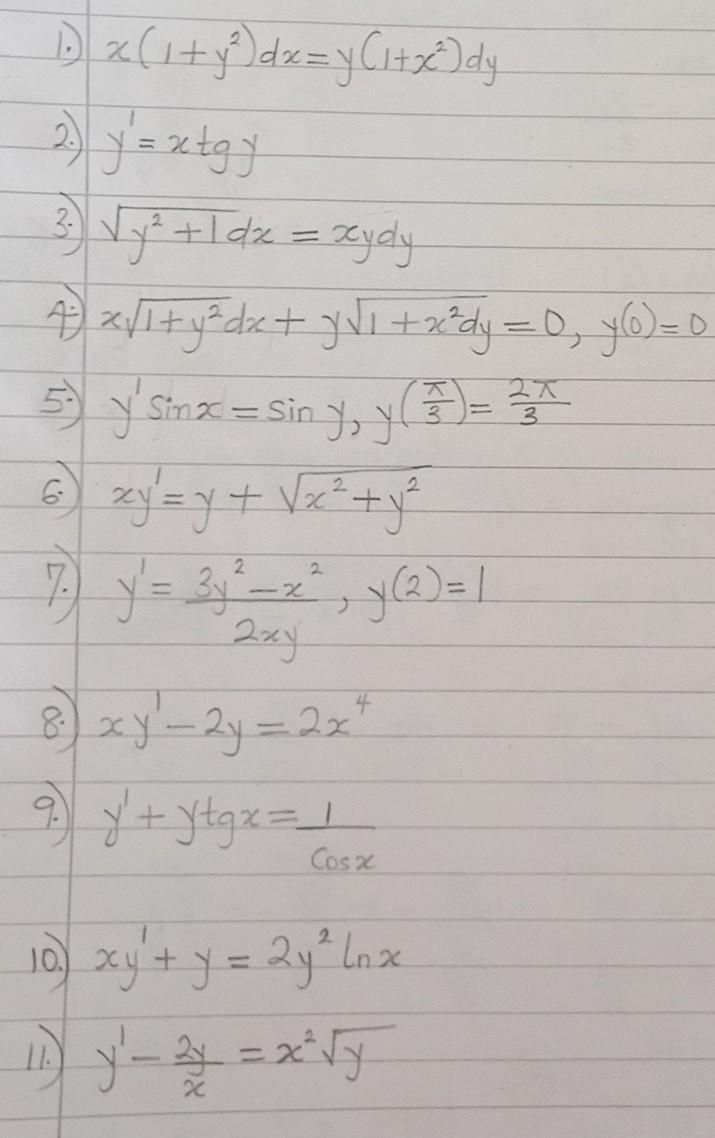 1.) x(1+y²)dx=y(1+x²)dy
2.) y'=xtgy
3.) √(y²+1)dx = xydy
4.) x√(1+y²)dx + y√(1+x²)dy=0, y(0)=0
5.) y' sinx = sin y, y(π/3)= 2π/3
6.) xy'=y + √(x²+y²)
7.) y'= (3y²-x²)/(2xy), y(2)=1
8.) xy'-2y=2x⁴
9.) y'+ytgx=1/cosx
10.) xy'+y = 2y² lnx
11.) y'- 2y/x = x²√y